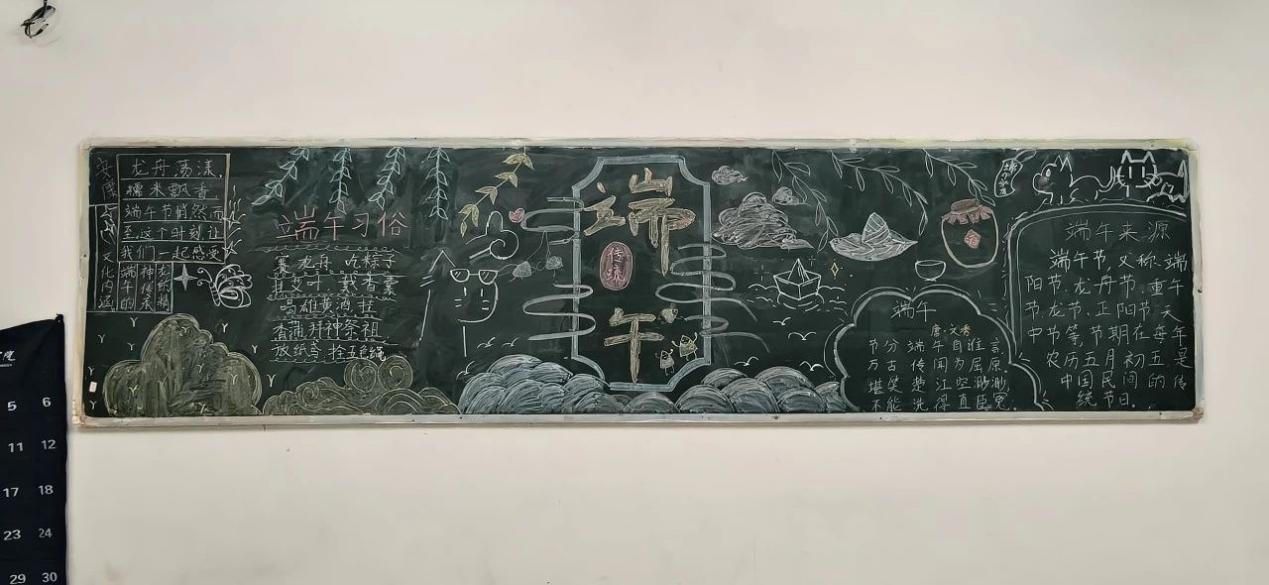 龙舟荡漾,
糯米飘香
端午节悄然而
至,这个时刻,让
我们一起感受
端午的
神传承
文化内涵
端午习俗
赛龙舟、吃粽子
挂艾叶、戴香囊
喝雄黄酒、挂
菖蒲、拜神祭祖
放纸鸢、拴五色线
端
传统
午
端午
唐·文秀
节分端午自谁言
万古传闻为屈原
堪笑楚江空渺渺,
不能洗得直臣冤。
端午来源
端午节,又称端
阳节、龙舟节、重午
节、龙节、正阳节、天
中节等,节期在每年
农历五月初五,是
中国民间的传
统节日。
5 6
11 12
17 18
23 24
29 30